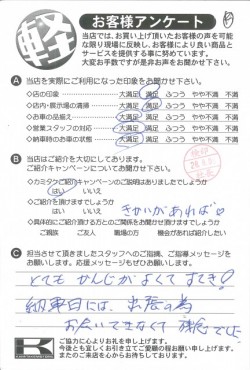 軽
お客様アンケート
当店では、お買い上げ頂いたお客様の声を可能
な限り現場に反映し、お客様により良い商品と
サービスを提供する事に努めています。
大変お手数ですが是非お声をお聞かせ下さい。
A 当店を実際にご利用になった印象をお聞かせ下さい。
◇店の印象 大満足 満足 ふつう やや不満 不満
◇店内・展示場の清掃 大満足 満足 ふつう やや不満 不満
◇お車の品揃え 大満足 満足 ふつう やや不満 不満
◇営業スタッフの対応 大満足 満足 ふつう やや不満 不満
◇納車時のお車の状態 大満足 満足 ふつう やや不満 不満
B 当店はご紹介を大切にしております。
ご紹介キャンペーンについてお聞かせ下さい。
◇カミタケご紹介キャンペーンのご説明はありましたでしょうか
はい いいえ
◇ご紹介を頂けますでしょうか
はい いいえ
きかいがあれば♡
◇具体的にご紹介頂ける方とのご関係をお聞かせ頂けますでしょうか
ご親族 ご友人 職場の方 機会があれば紹介したい
C 担当させて頂きましたスタッフへのご指摘、ご指導メッセージを
お願いします。応援メッセージもぜひお願いします。
とても かんじがよくて すてき!
納車日には、出店の為
お会いできなくて 残念でした
K
ご協力に心よりお礼を申し上げます。
今後とも宜しくお引き立てご愛顧の程お願い申し上げます。
またのご来店を心からお待ちしております。